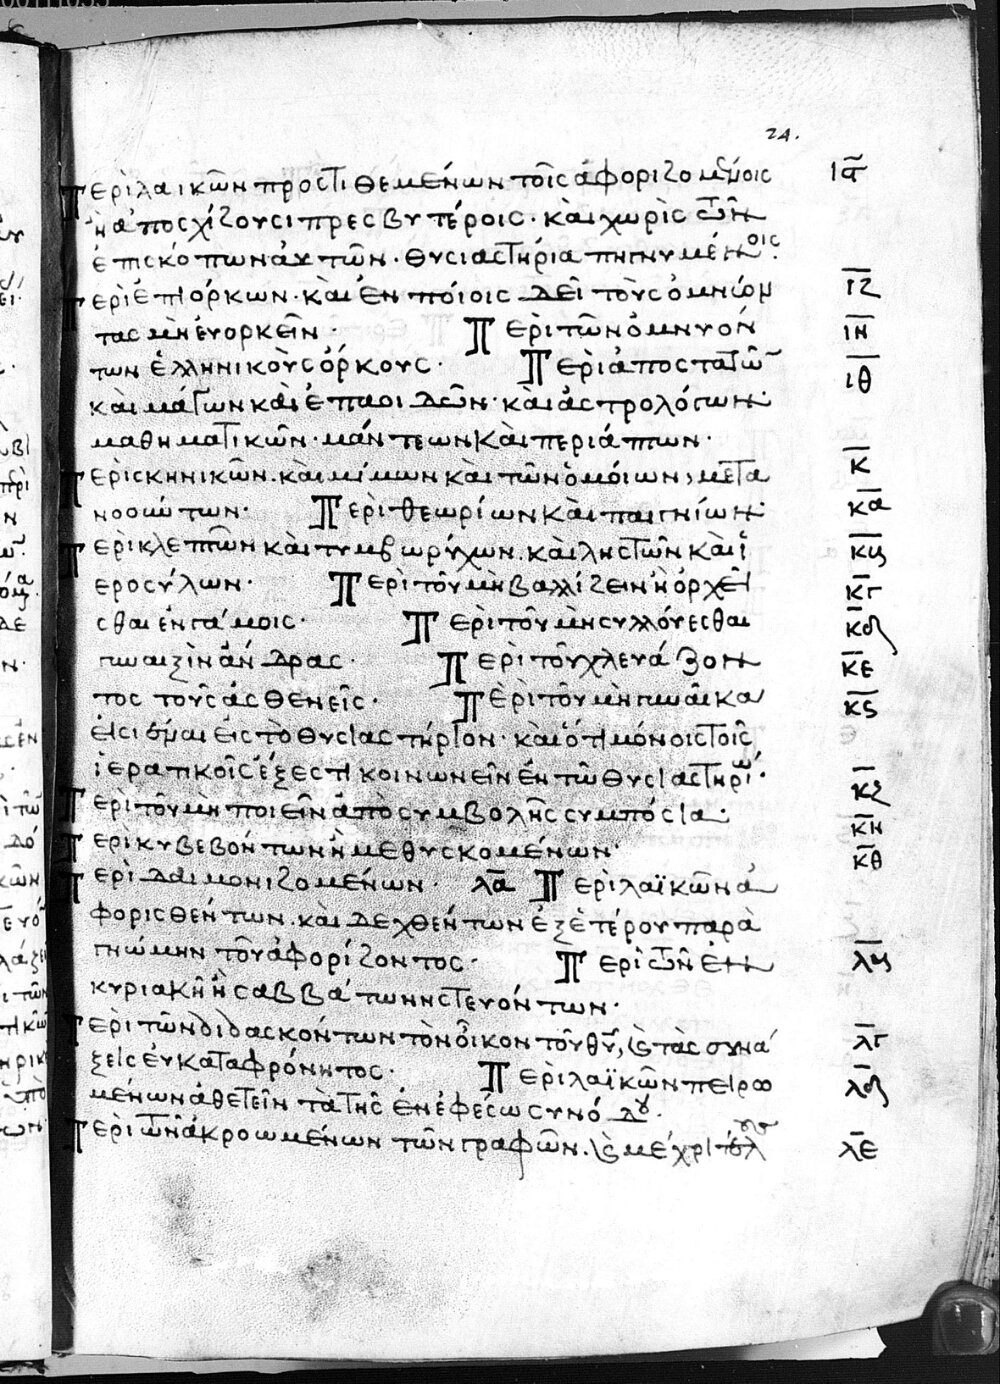 24.
Περὶ λαικῶν προστιθεμένων τοῖς ἀφοριζομένοις ις
ἢ ἀποσχίζουσι πρεσβυτέροις· καὶ χωρὶς τῶν
ἐπισκόπων αὐτῶν· θυσιαστήρια πηγνυμένοις·
Περὶ ἐπιόρκων· καὶ ἐν ποίοις δεῖ τοὺς ὀμνύομ ιζ
τας μὴ εὐορκεῖν· Περὶ τῶν ὀμνυόν ιη
των ἑλληνικοὺς ὅρκους· Περὶ ἀποστατῶν ιθ
καὶ μάγων καὶ ἐπαοιδῶν· καὶ ἀστρολόγων·
μαθηματικῶν· μάντεων καὶ περιάπτων·
Περὶ σκηνικῶν· καὶ μίμων καὶ τῶν ὁμοίων, μετα κ
νοούντων· Περὶ θεωρίων καὶ παιγνίων· κα
Περὶ κλεπτῶν καὶ τυμβωρύχων· καὶ ληστῶν καὶ ἱ κβ
εροσύλων· Περὶ τοῦ μὴ βαλλίζειν ἢ ὀρχεῖ κγ
σθαι ἐν γάμοις· Περὶ τοῦ μὴ συλλούεσθαι κδ
γυναιξὶν ἄνδρας· Περὶ τοῦ χλευάζον κε
τος τοὺς ἀσθενεῖς· Περὶ τοῦ μὴ γυναῖκα κς
εἰσιέναι εἰς τὸ θυσιαστήριον· καὶ ὅτι μόνοις τοῖς
ἱερατικοῖς ἔξεστι κοινωνεῖν ἐν τῶ θυσιαστηρίω·
Περὶ τοῦ μὴ ποιεῖν ἀπὸ συμβολῆς συμπόσια· κζ
Περὶ κυβευόντων ἢ μεθυσκομένων· κη
Περὶ δαιμονιζομένων· λα Περὶ λαϊκῶν ἀ κθ
φορισθέντων· καὶ δεχθέντων ἐξ ἑτέρου παρὰ
γνώμην τοῦ ἀφορίζοντος· Περὶ τῶν ἐν λβ
κυριακῆ ἢ σαββάτω νηστευόντων·
Περὶ τῶν διδασκόντων τὸν οἶκον τοῦ θυ, κ τὰς συνά λγ
ξεις εὐκαταφρόνητος· Περὶ λαϊκῶν πειρω λδ
μένων ἀθετεῖν τὰ τῆς ἐν ἐφέσω συνόδου·
Περὶ τῶν ἀκροωμένων τῶν γραφῶν· κ μέχρι λε